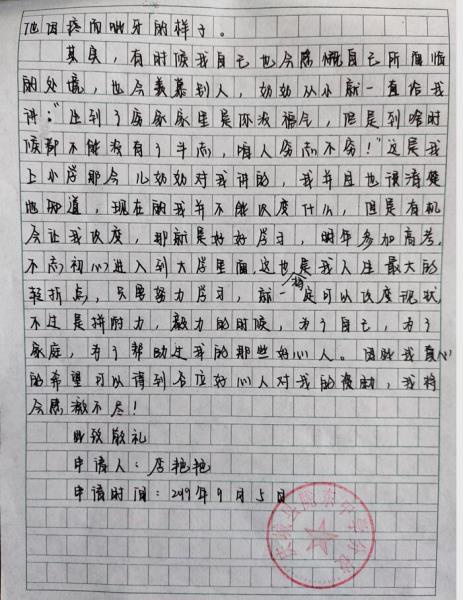 他因疼而呲牙的样子。
其实，有时候我自己也会感慨自己所面临
的处境，也会羡慕别人，奶奶从小就一直给我
讲："生到了唐家家里是你没福气，但是到啥时
候都不能没有了斗志，咱人穷志不穷！"这是我
上小学那会儿奶奶对我讲的，我并且也很清楚
地知道，现在的我并不能改变什么，但是有机
会让我改变，那就是好好学习，明年参加高考，
不忘初心进入到大学里面，这也是我人生最大的
转折点，只要努力学习，就一定可以改变现状
不过是拼耐力，毅力的时候，为了自己，为了
家庭，为了帮助过我的那些好心人。因此我真心
的希望可以得到各位好心人对我的援助，我将
会感激不尽！
此致敬礼
申请人：唐艳艳
申请时间：2019年9月5日